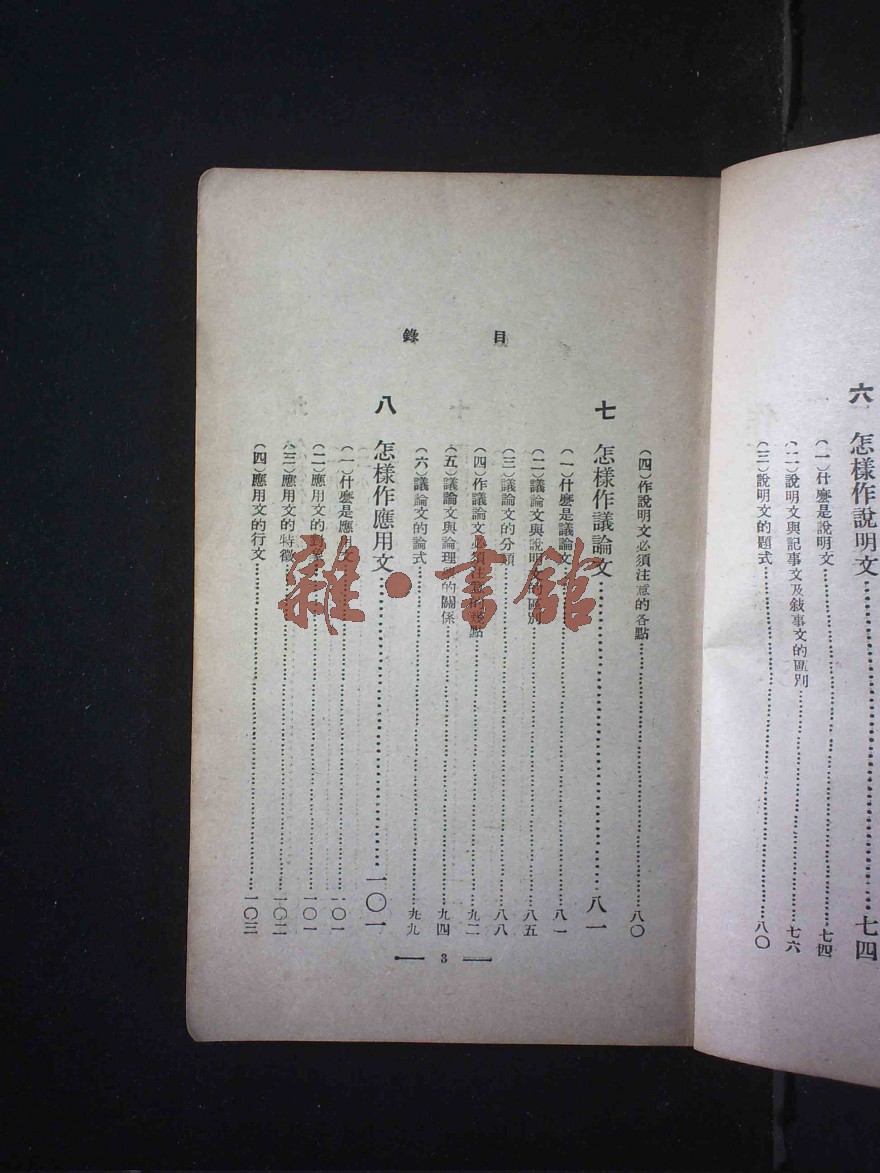 六 怎樣作說明文……七四
（一）什麼是說明文……七四
（二）說明文與記事文及敍事文的區別……七六
（三）說明文的題式……八〇
目錄
（四）作說明文必須注意的各點……八〇
七 怎樣作議論文……八一
（一）什麼是議論文……八一
（二）議論文與說明文的區別……八五
（三）議論文的分類……八八
（四）作議論文必須注意的各點……九二
（五）議論文與論理 的關係……九四
（六）議論文的論式……九九
八 怎樣作應用文……一〇一
（一）什麼是應用文……一〇一
（二）應用文的對象……一〇一
（三）應用文的特徵……一〇二
（四）應用文的行文……一〇三
3
雜·書館